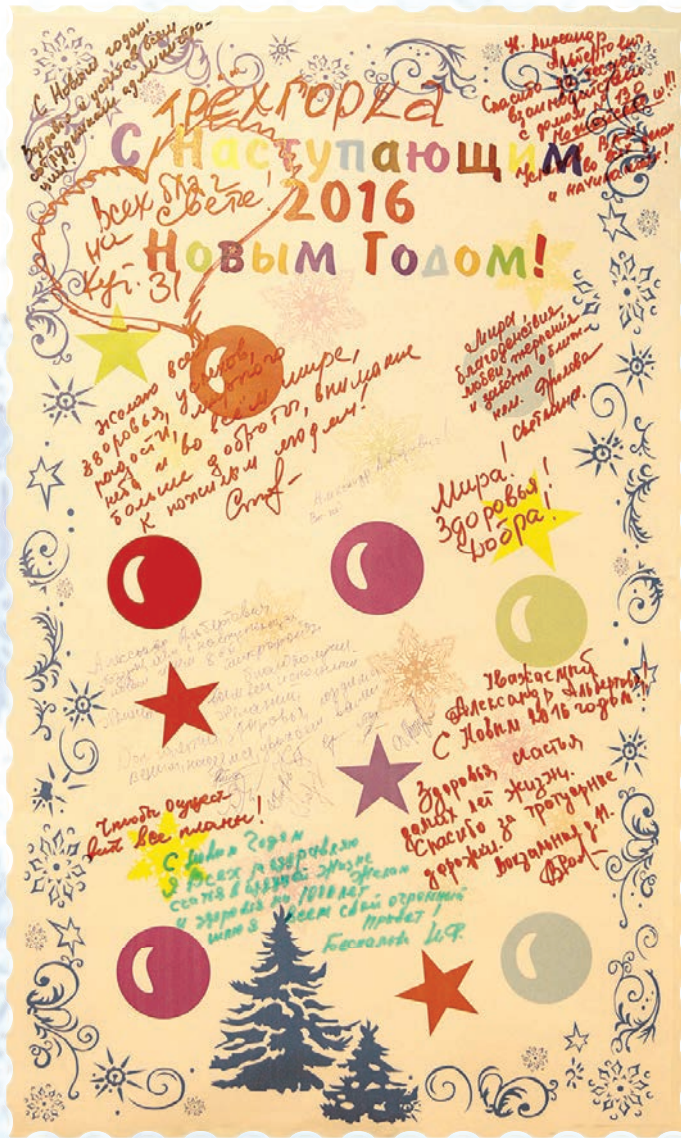 С Новым годом!
Здоровья и успехов всем
сотрудникам администра-
ции!
У. Александр
Альбертович
Спасибо за честное
взаимодействие
с домом № 130
Можайское ш!!!
Успехов Вам
во всех делах
и начинаниях!
ТРЁХГОРКА
С Наступающим
2016
Новым Годом!
Всех благ
на свете!
Кут. 31
Желаю всем
здоровья, успехов,
радости, мирного
неба и во всём мире,
больше доброты, внимание
к пожилым людям!
Мира
благоденствия
любви терпения
и заботы о ближ-
нем.
Светлана.
Мира!
Здоровья!
Добра!
Александр Альбертович!
Александр Альбертович
с наступающим
новым
микрорайона
благодарны
желания
здоровья
Уважаемый
Александр Альбертович!
С Новым 2016 годом!!
Здоровья счастья
долгих лет жизни.
Спасибо за тротуарные
дорожки.
Вокзальная д. 11.
Чтобы осущест
вит все планы!
С Новым Годом
Я Всех поздравляю
счастья в Жизни
Желаю
и здоровья на 1000 лет
шлю я всем свой огромный
привет!
Беспалова